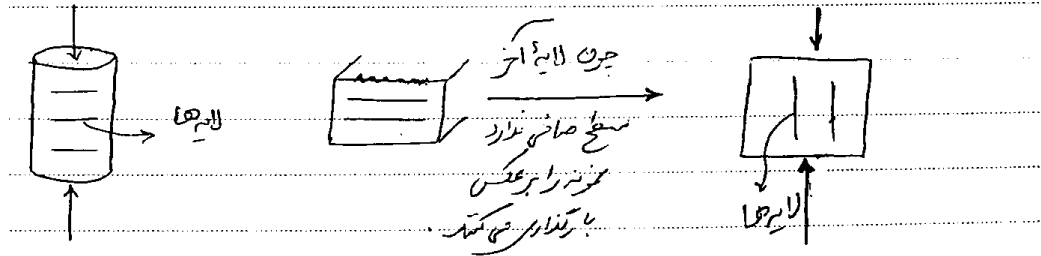 لایه‌ها
چون لایهٔ آخر
سطح صافی ندارد
نمونه را برعکس
بارگذاری می کنند.
لایه‌ها